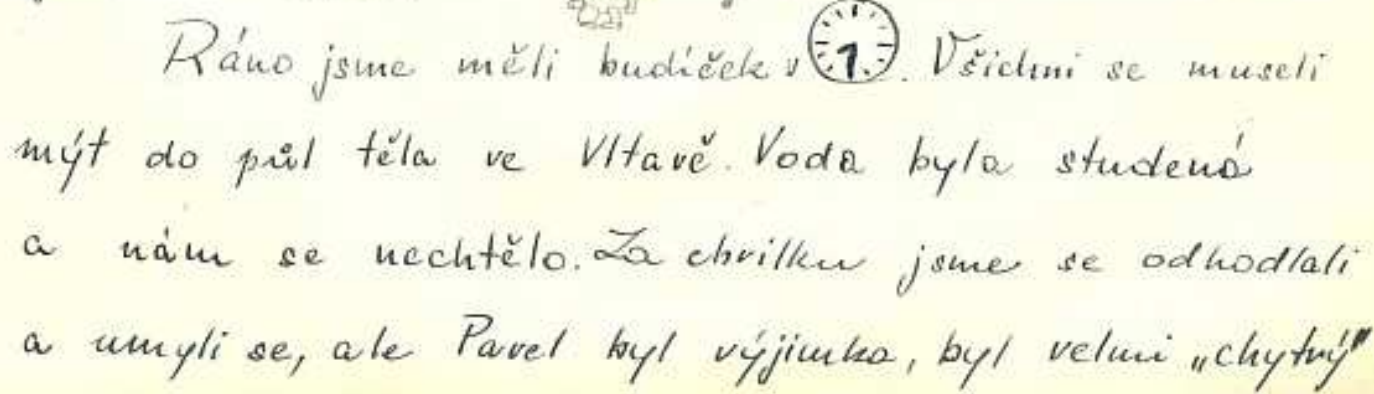 Ráno jsme měli budíček v 7. Všichni se museli
mýt do půl těla ve Vltavě. Voda byla studená
a nám se nechtělo. Za chvilku jsme se odhodlali
a umyli se, ale Pavel byl výjimka, byl velmi „chytrý"